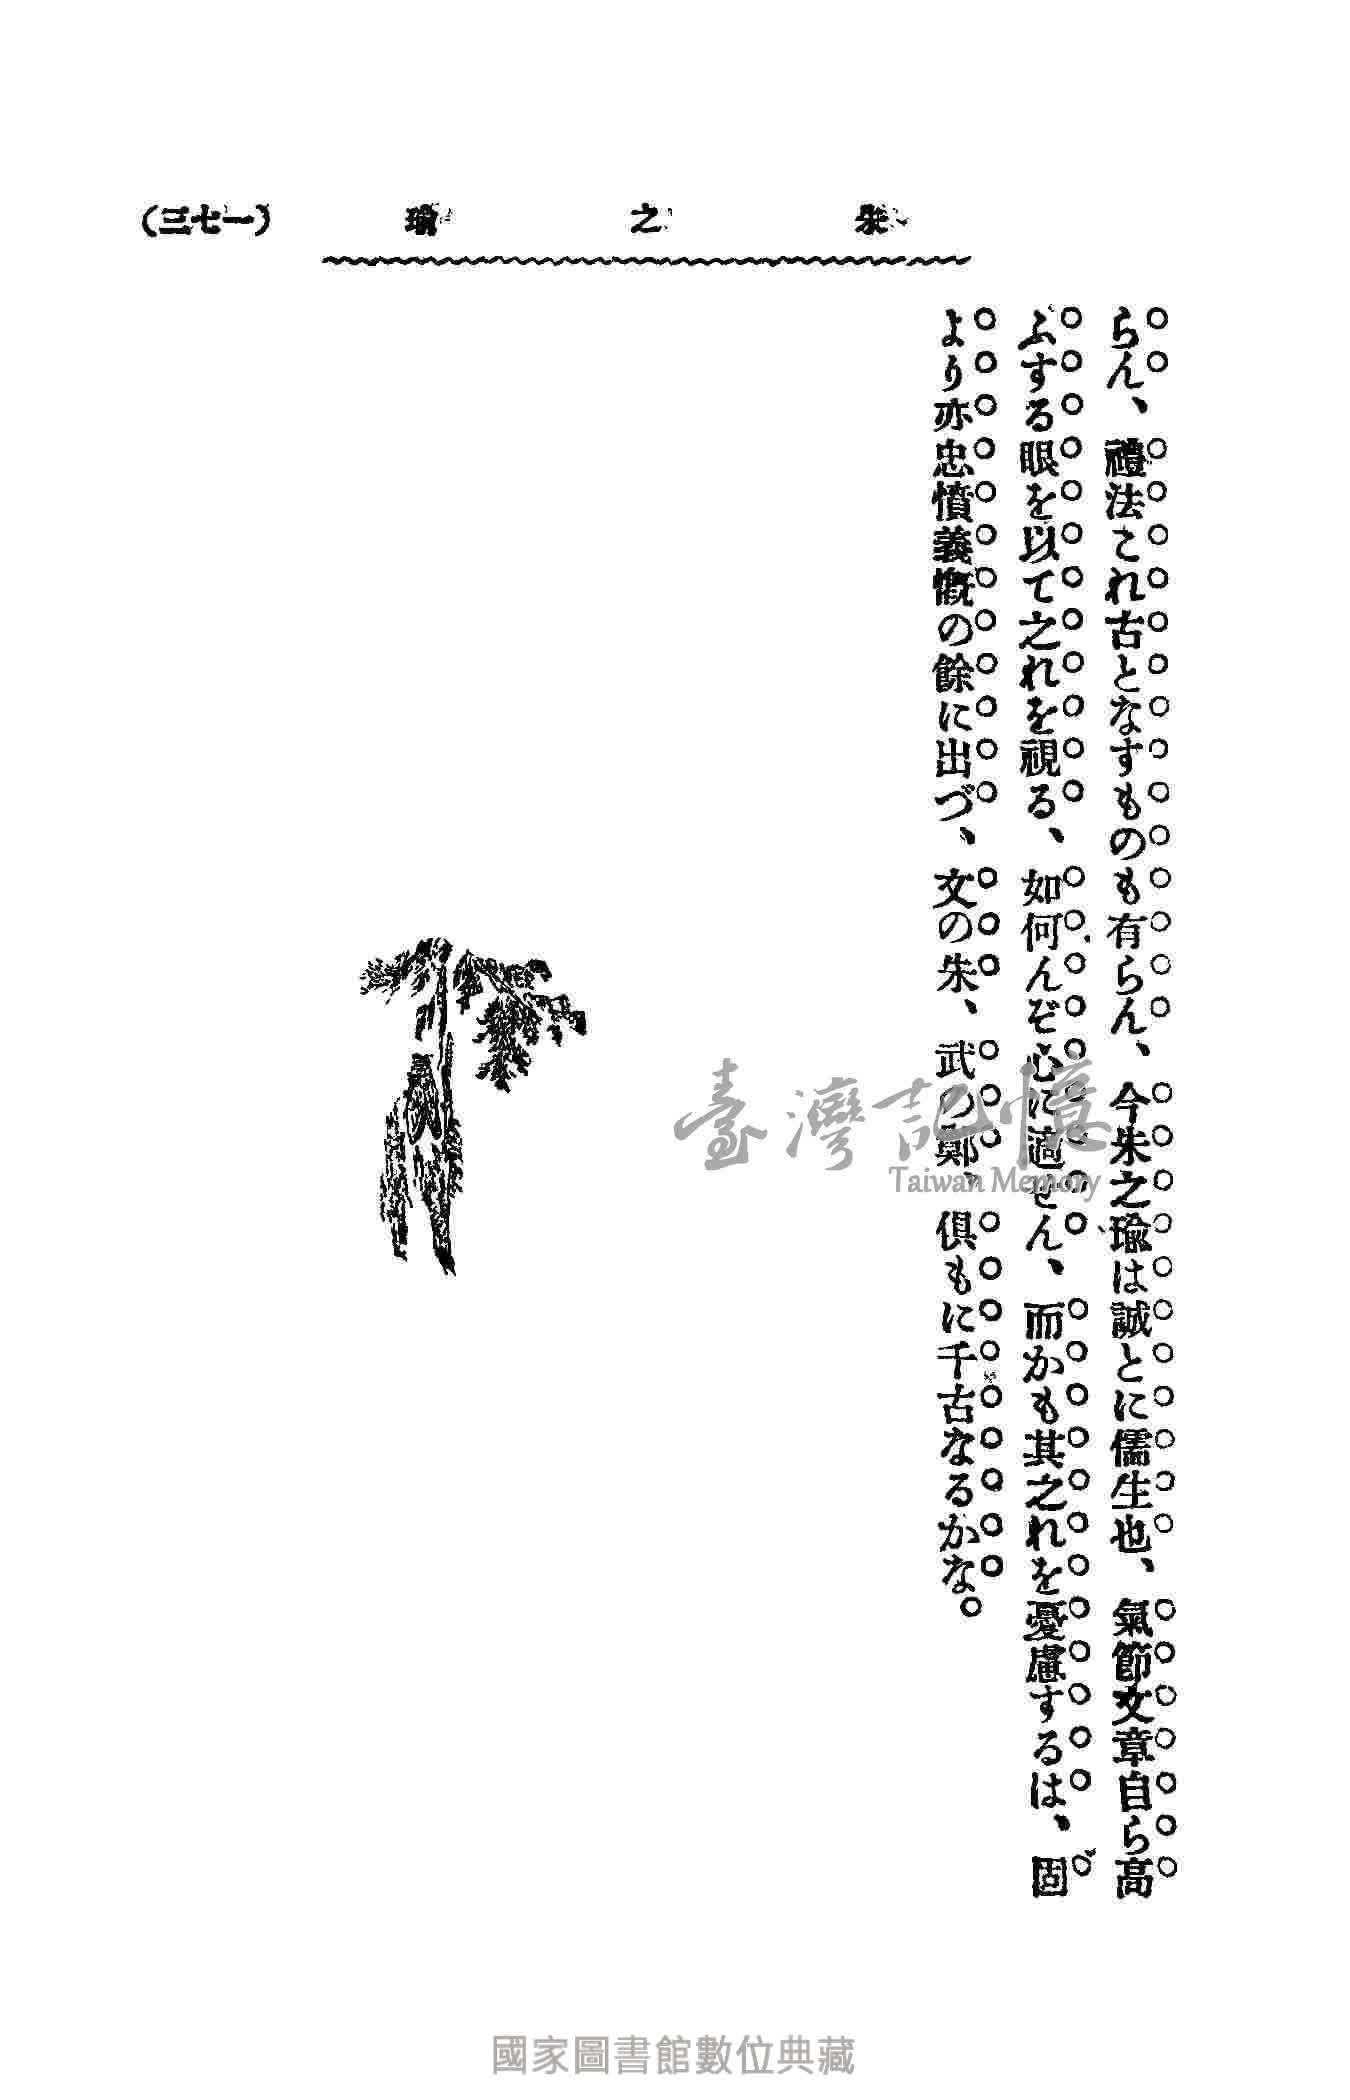 朱之瑜
(一七三)
らん、禮法これ古となすものも有らん、今朱之瑜は誠とに儒生也、氣節文章自ら高
ぶする眼を以て之れを視る、如何んぞ心に適せん、而かも其之れを憂慮するは、固
より亦忠憤義慨の餘に出づ、文の朱、武の鄭、倶もに千古なるかな。
臺灣記憶
Taiwan Memory
國家圖書館數位典藏